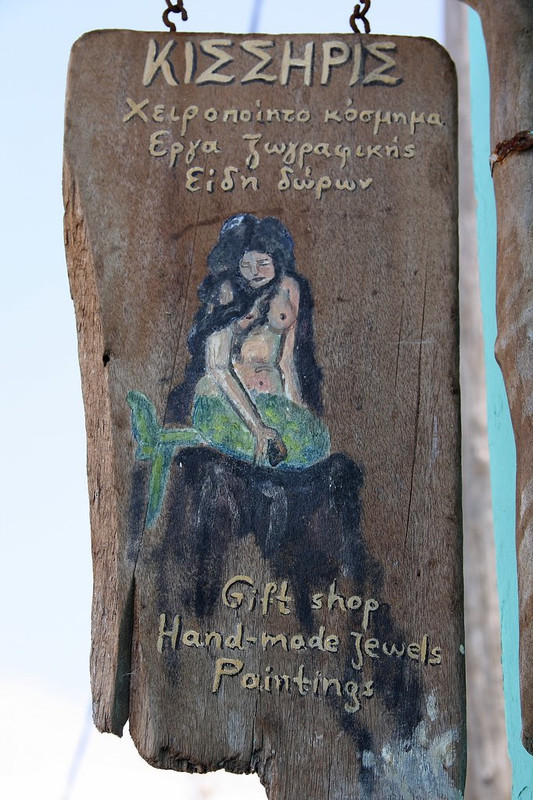 ΚΙΣΣΗΡΙΣ
Χειροποίητο κόσμημα
Εργα ζωγραφικής
Είδη δώρων
Gift shop
Hand-made Jewels
Paintings